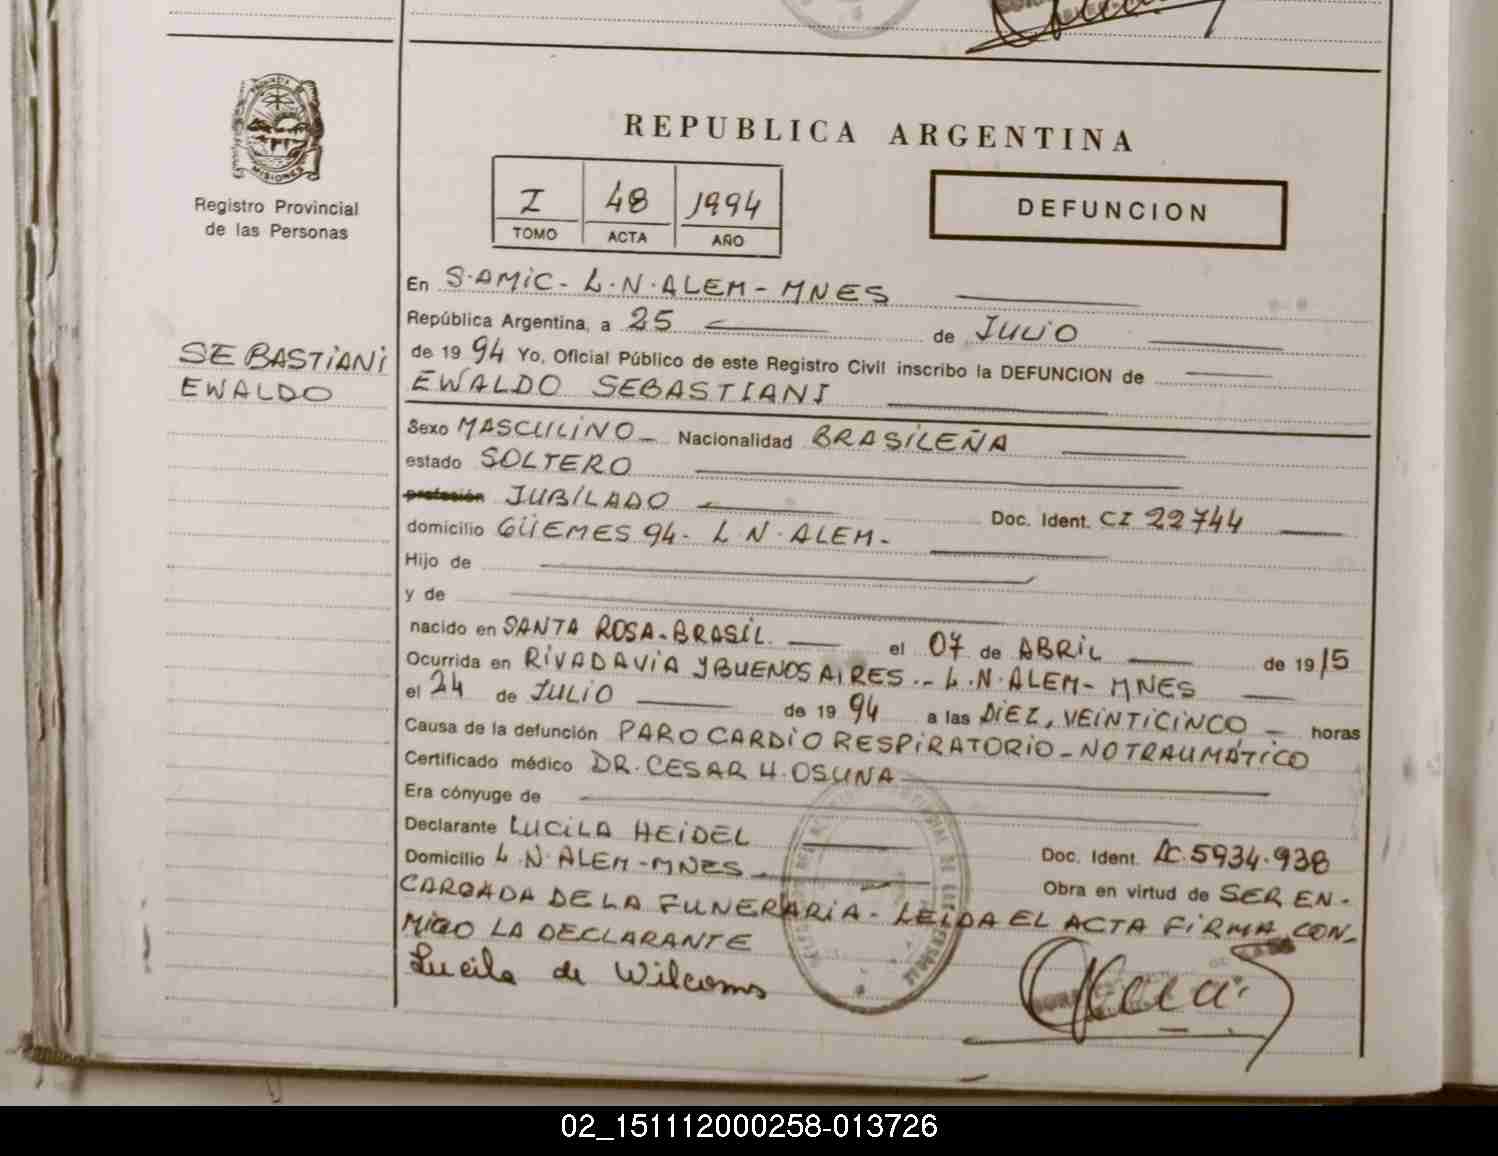 PROVINCIA DE
MISIONES
Registro Provincial
de las Personas
SEBASTIANI
EWALDO
REPUBLICA ARGENTINA
I 48 1994
TOMO ACTA AÑO
DEFUNCION
En S.AMIC - L.N.ALEM - MNES
República Argentina, a 25 de JULIO
de 1994 Yo, Oficial Público de este Registro Civil inscribo la DEFUNCION de
EWALDO SEBASTIANI
Sexo MASCULINO Nacionalidad BRASILEÑA
estado SOLTERO
profesión JUBILADO Doc. Ident. CI 22744
domicilio GÜEMES 94 - L.N.ALEM -
Hijo de
y de
nacido en SANTA ROSA - BRASIL. el 07 de ABRIL de 1915
Ocurrida en RIVADAVIA Y BUENOS AIRES - L.N.ALEM - MNES
el 24 de JULIO de 1994 a las DIEZ, VEINTICINCO horas
Causa de la defunción PARO CARDIO RESPIRATORIO - NO TRAUMÁTICO
Certificado médico DR. CESAR H. OSUNA
Era cónyuge de
Declarante LUCILA HEIDEL Doc. Ident. LC. 5934.938
Domicilio L.N.ALEM - MNES Obra en virtud de SER EN-
CARGADA DE LA FUNERARIA - LEIDA EL ACTA FIRMA CON-
MIGO LA DECLARANTE
Lucila de
02_151112000258-013726